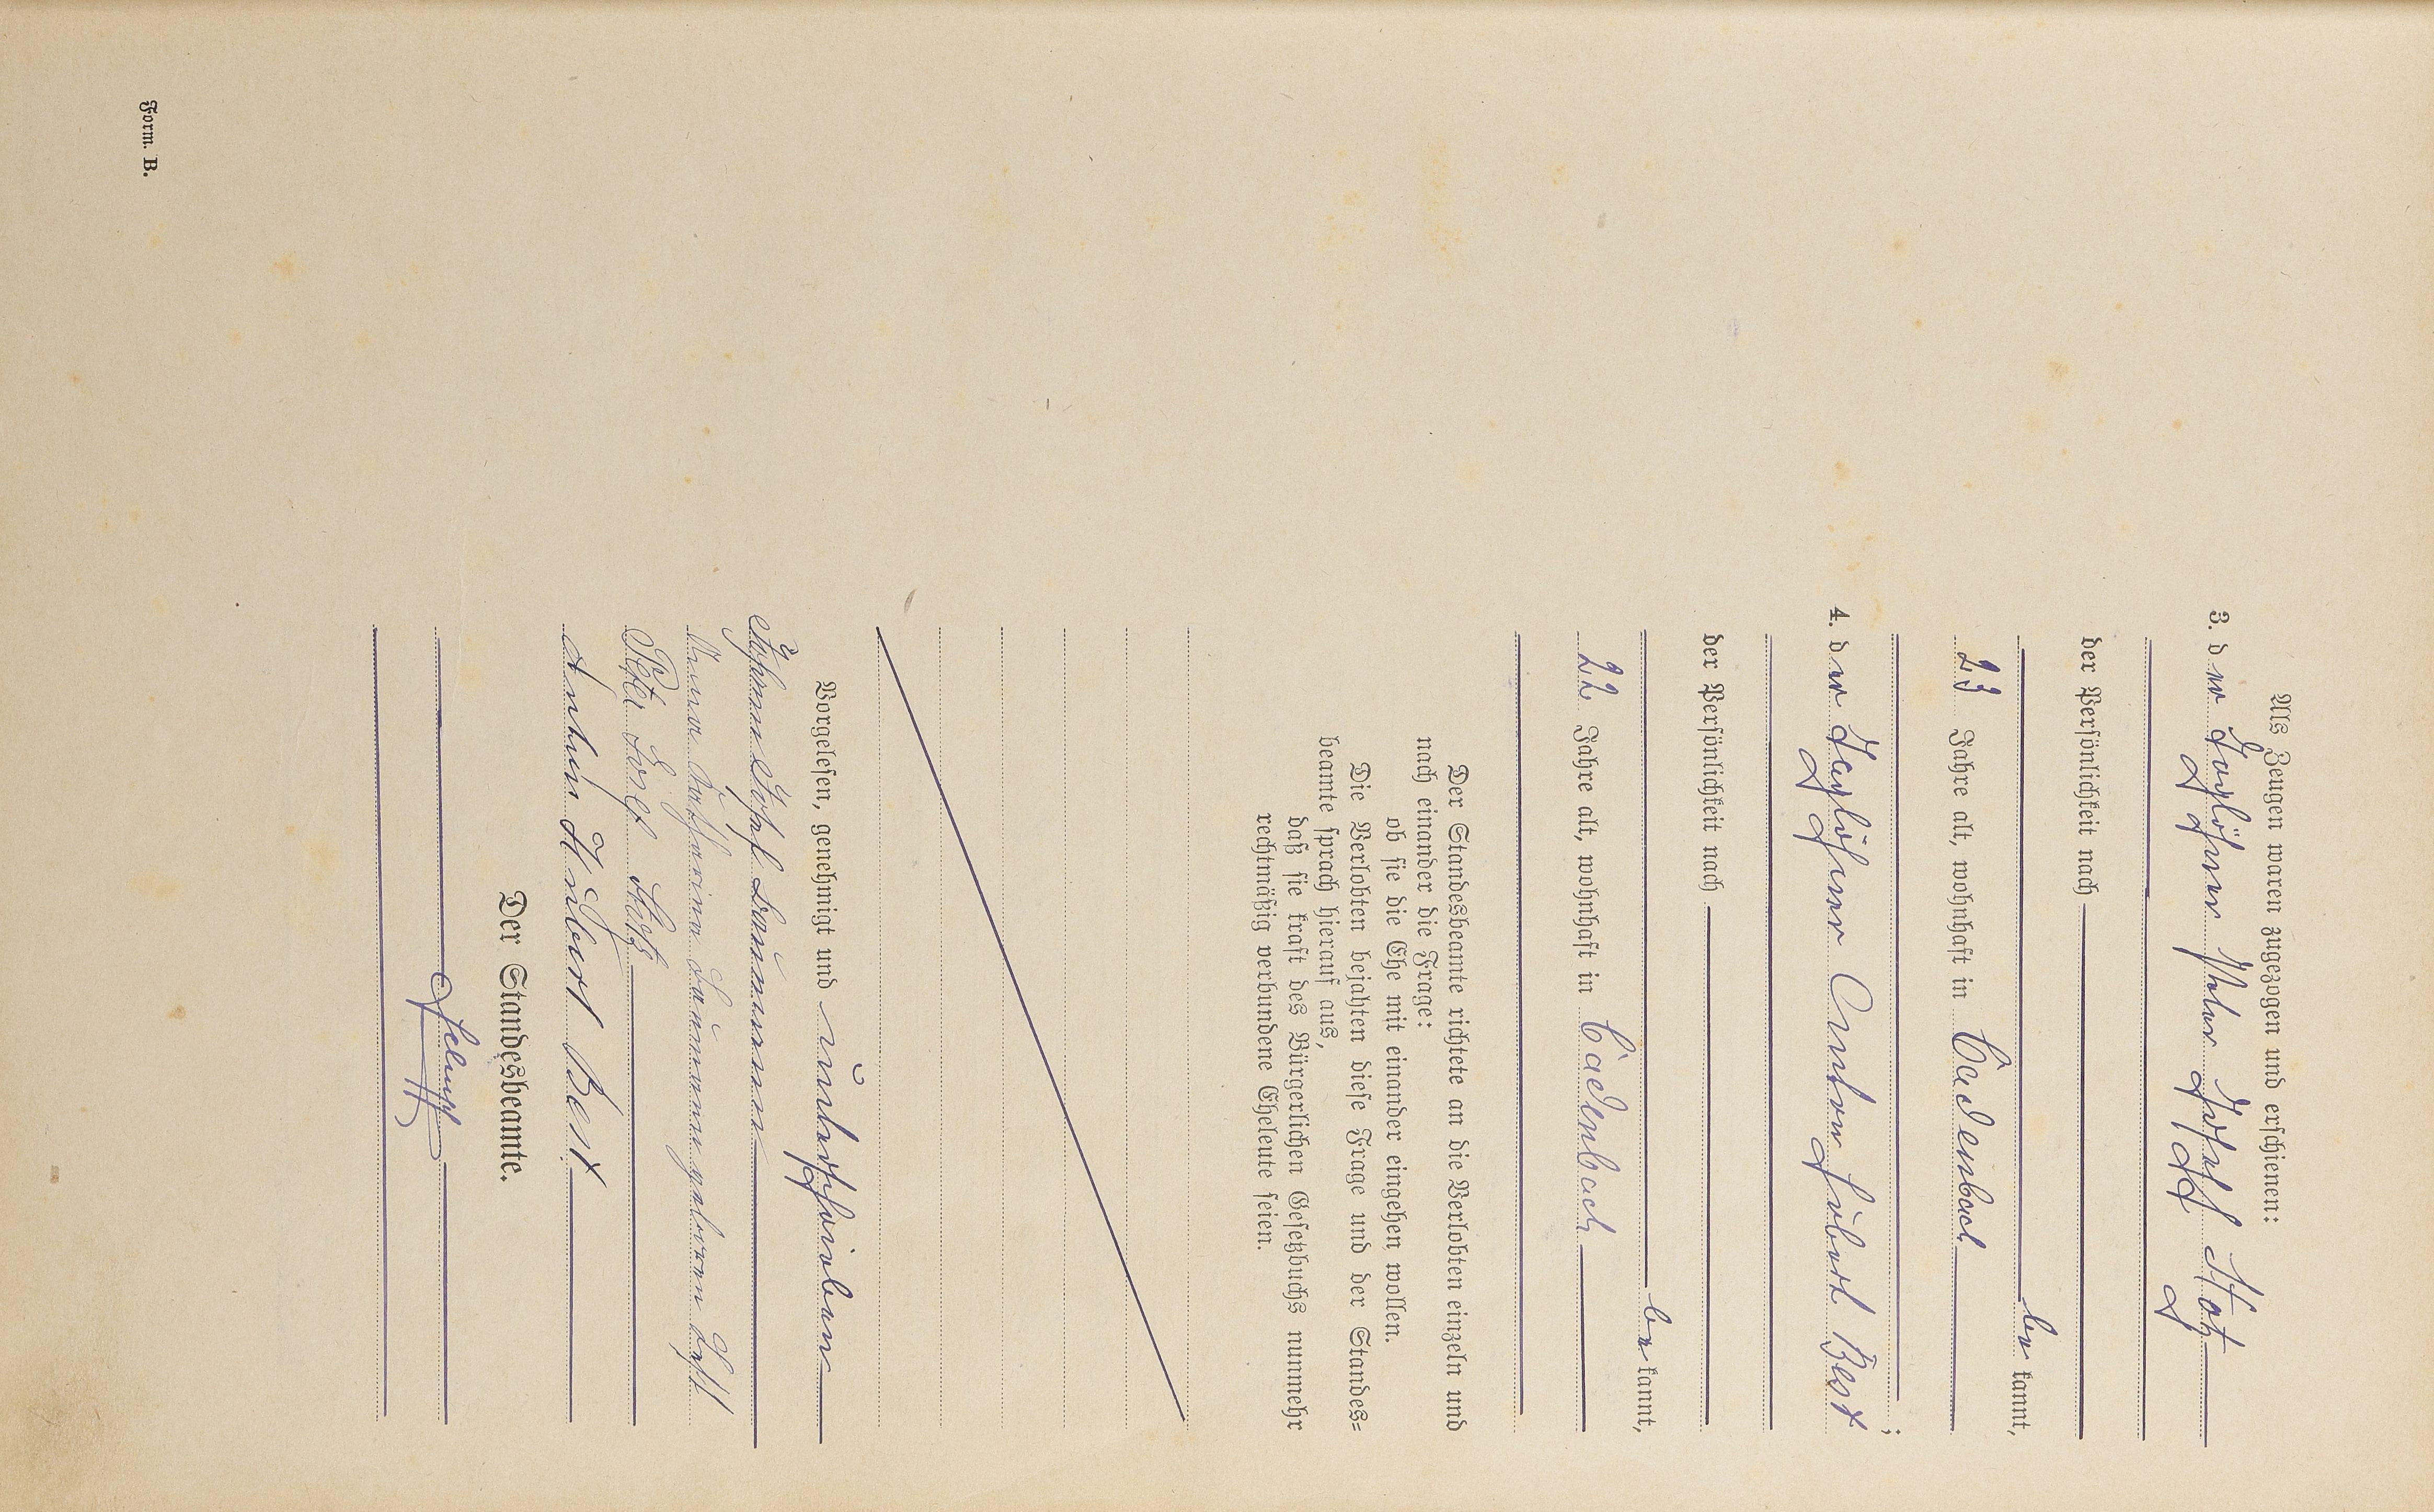 Als Zeugen waren zugezogen und erschienen:
3. der Taglöhner Peter Joseph Stotz
der Persönlichkeit nach
be kannt,
23 Jahre alt, wohnhaft in Cadenbach
4. der Taglöhner Anton Hubert Best
;
der Persönlichkeit nach
be kannt,
22 Jahre alt, wohnhaft in Cadenbach
Der Standesbeamte richtete an die Verlobten einzeln und
nach einander die Frage:
ob sie die Ehe mit einander eingehen wollen.
Die Verlobten bejahten diese Frage und der Standes=
beamte sprach hierauf aus,
daß sie kraft des Bürgerlichen Gesetzbuchs nunmehr
rechtmäßig verbundene Eheleute seien.
Vorgelesen, genehmigt und unterschrieben
Johann Josef
Anna Katharina geborene
Peter Josef Stotz
Anton Hubert Best
Der Standesbeamte.
Form. B.